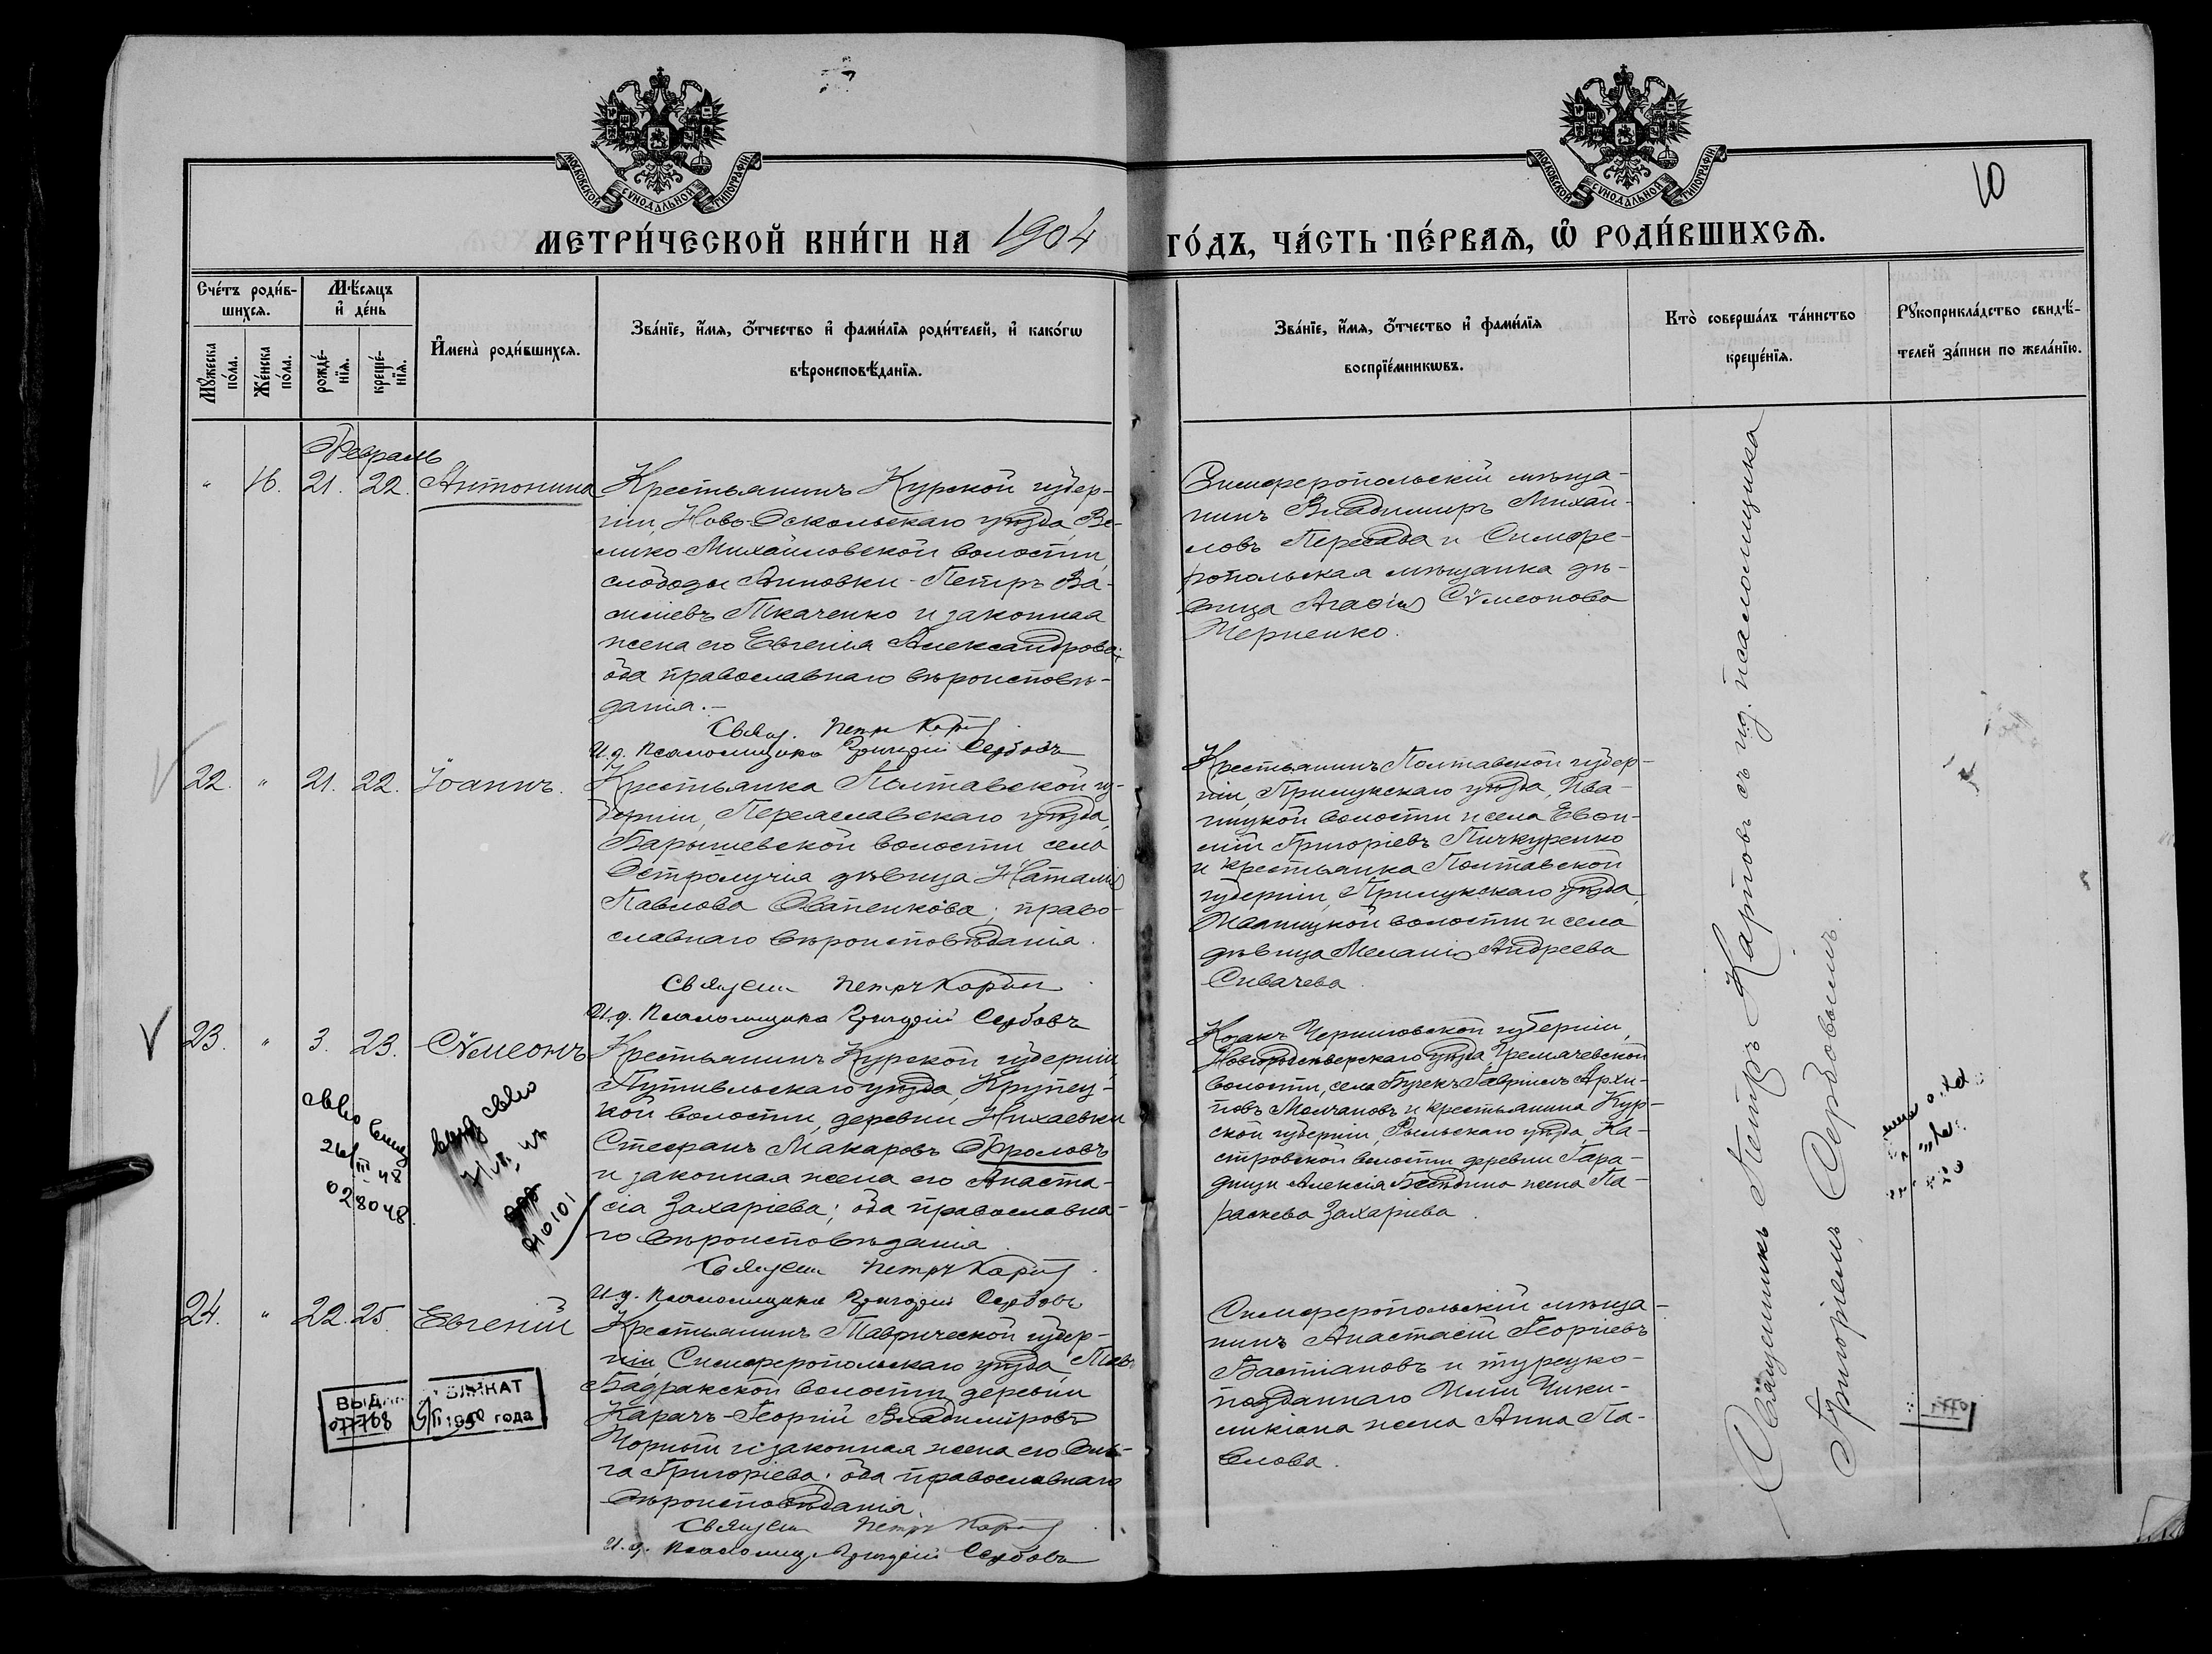 МОСКОВСКОЙ СУНОДАЛЬНОЙ ТИПОГРАФІИ
МОСКОВСКОЙ СУНОДАЛЬНОЙ ТИПОГРАФІИ
10
МЕТРИ́ЧЕСКОЙ КНИ́ГИ НА 1904 ГО́ДЪ, ЧА́СТЬ ПЕ́РВАѦ, Ѡ РОДИ́ВШИХСѦ.
Сче́тъ роди́в-
шихся.
Мѣ́сяцъ
и҆ де́нь
Мꙋ́жеска
по́ла.
Же́нска
по́ла.
рожде́-
нїя.
креще́-
нїя.
И҆мена̀ роди́вшихся.
Зва́нїе, и҆́мя, о҆́тчество и҆ фами́лїя роди́телей, и҆ како́гѡ
вѣроисповѣ́данїя.
Зва́нїе, и҆́мя, о҆́тчество и҆ фами́лїя
воспрїе́мникѡвъ.
Кто̀ соверша́лъ та́инство
креще́нїя.
Рꙋкоприкла́дство свидѣ́-
телей за́писи по жела́нїю.
Февраль
" 16. 21. 22. Антонина
Крестьянинъ Курской губер-
ніи, Ново-Оскольскаго уѣзда, Ве-
лико-Михайловской волости,
слободы Аиновки - Петръ Ва-
силіевъ Ткаченко и законная
жена его Евгенія Александрова;
оба православнаго вѣроисповѣ-
данія.-
Свящ. Петръ Карпов
И.д. Псаломщика Григорій Сербовъ
Симферопольскій мѣща-
нинъ Владимиръ Михай-
ловъ Пересада и Симфе-
ропольская мѣщанка дѣ-
вица Агафія Сѵмеонова
Черненко.
22. " 21. 22. Іоаннъ.
Крестьянка Полтавской гу-
берніи, Переяславскаго уѣзда,
Барышевской волости села
Остролучія дѣвица Наталія
Павлова Остапенкова; право-
славнаго вѣроисповѣданія.
Священ Петръ Карпов
И.д. Псаломщика Григорій Сербовъ
Крестьянинъ Полтавской губер-
ніи, Прилукскаго уѣзда, Ива-
ницкой волости и села Евѳи-
мій Григоріевъ Пичкуренко
и крестьянка Полтавской
губерніи, Прилукскаго уѣзда,
Иваницкой волости и села
дѣвица Меланія Андреева
Сивачева.
23. " 3. 23. Сѵмеонъ
Крестьянинъ Курской губерніи
Путивльскаго уѣзда, Крупец-
кой волости, деревни Нихаевки
Стефанъ Макаровъ Фроловъ
и законная жена его Анаста-
сія Захаріева; оба православна-
го вѣроисповѣданія.
Священ Петръ Карпов
И.д. Псаломщика Григорій Сербовъ
26/III 48
028048.
Козакъ Черниговской губерніи,
Новгородсѣверскаго уѣзда, Гремячевской
волости, села Бучекъ Гавріилъ Архи-
повъ Молчановъ и крестьянина Кур-
ской губерніи, Рыльскаго уѣзда, Ка-
стровской волости деревни Гара-
дищи Алексія Бесѣдина жена Па-
раскева Захаріева.
24. " 22. 25. Евгеній
Крестьянинъ Таврической губер-
ніи, Симферопольскаго уѣзда,
Бадракской волости деревни
Карачъ - Георгій Владиміровъ
Чорный и законная жена его Оль-
га Григоріева; оба православнаго
вѣроисповѣданія.
Священ Петръ Карпов
И.д. Псаломщ. Григорій Сербовъ
077768 1950 года
Симферопольскій мѣща-
нинъ Анастасій Георгіевъ
Бастіановъ и турецко-
подданнаго Иліи Чики-
ликіана жена Анна Па-
влова.
Священникъ Петръ Карповъ съ и.д. псаломщика
Григоріемъ Сербовымъ.